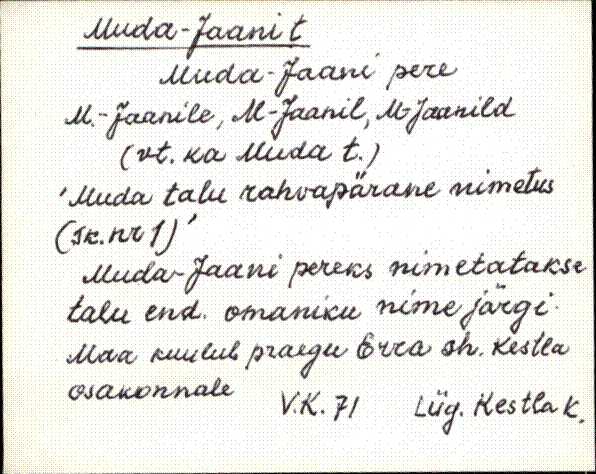 Muda-Jaani t
Muda-Jaani pere
M.-Jaanile, M-Jaanil, M-Jaanild
(vt. ka Muda t.)
'Muda talu rahvapärane nimetus
(sk. nr 1)'
Muda-Jaani pereks nimetatakse
talu end. omaniku nime järgi.
Maa kuulub praegu Erra sh. Kestla
osakonnale
V.K. 71 Lüg. Kestla k.